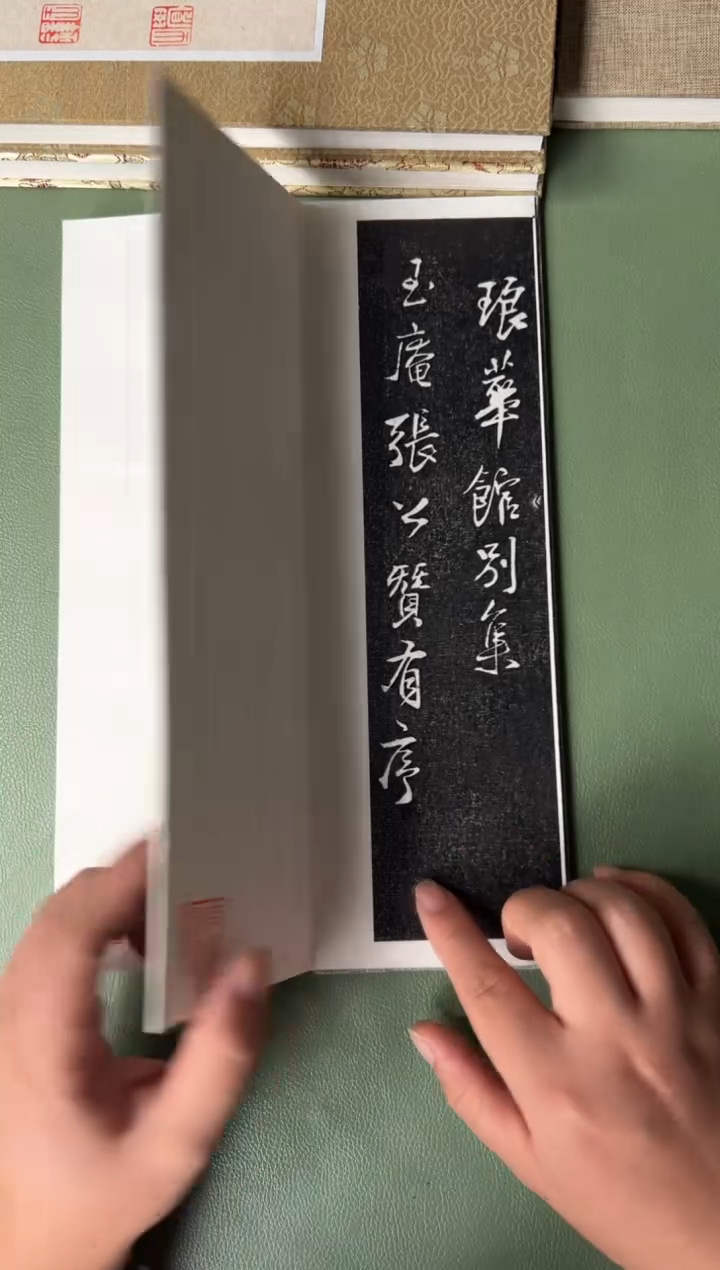 琅華館別集
玉庵張公贊有序